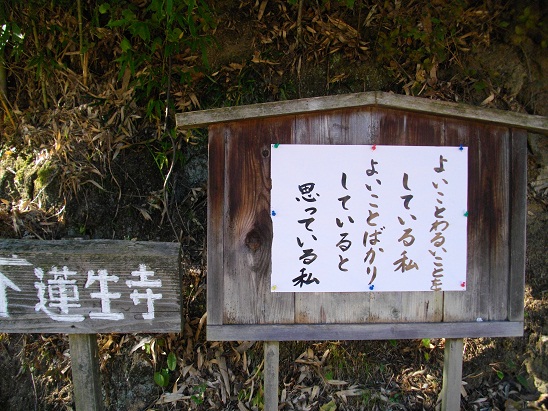 よいことわるいことを
している私
よいことばかり
していると
思っている私
蓮生寺